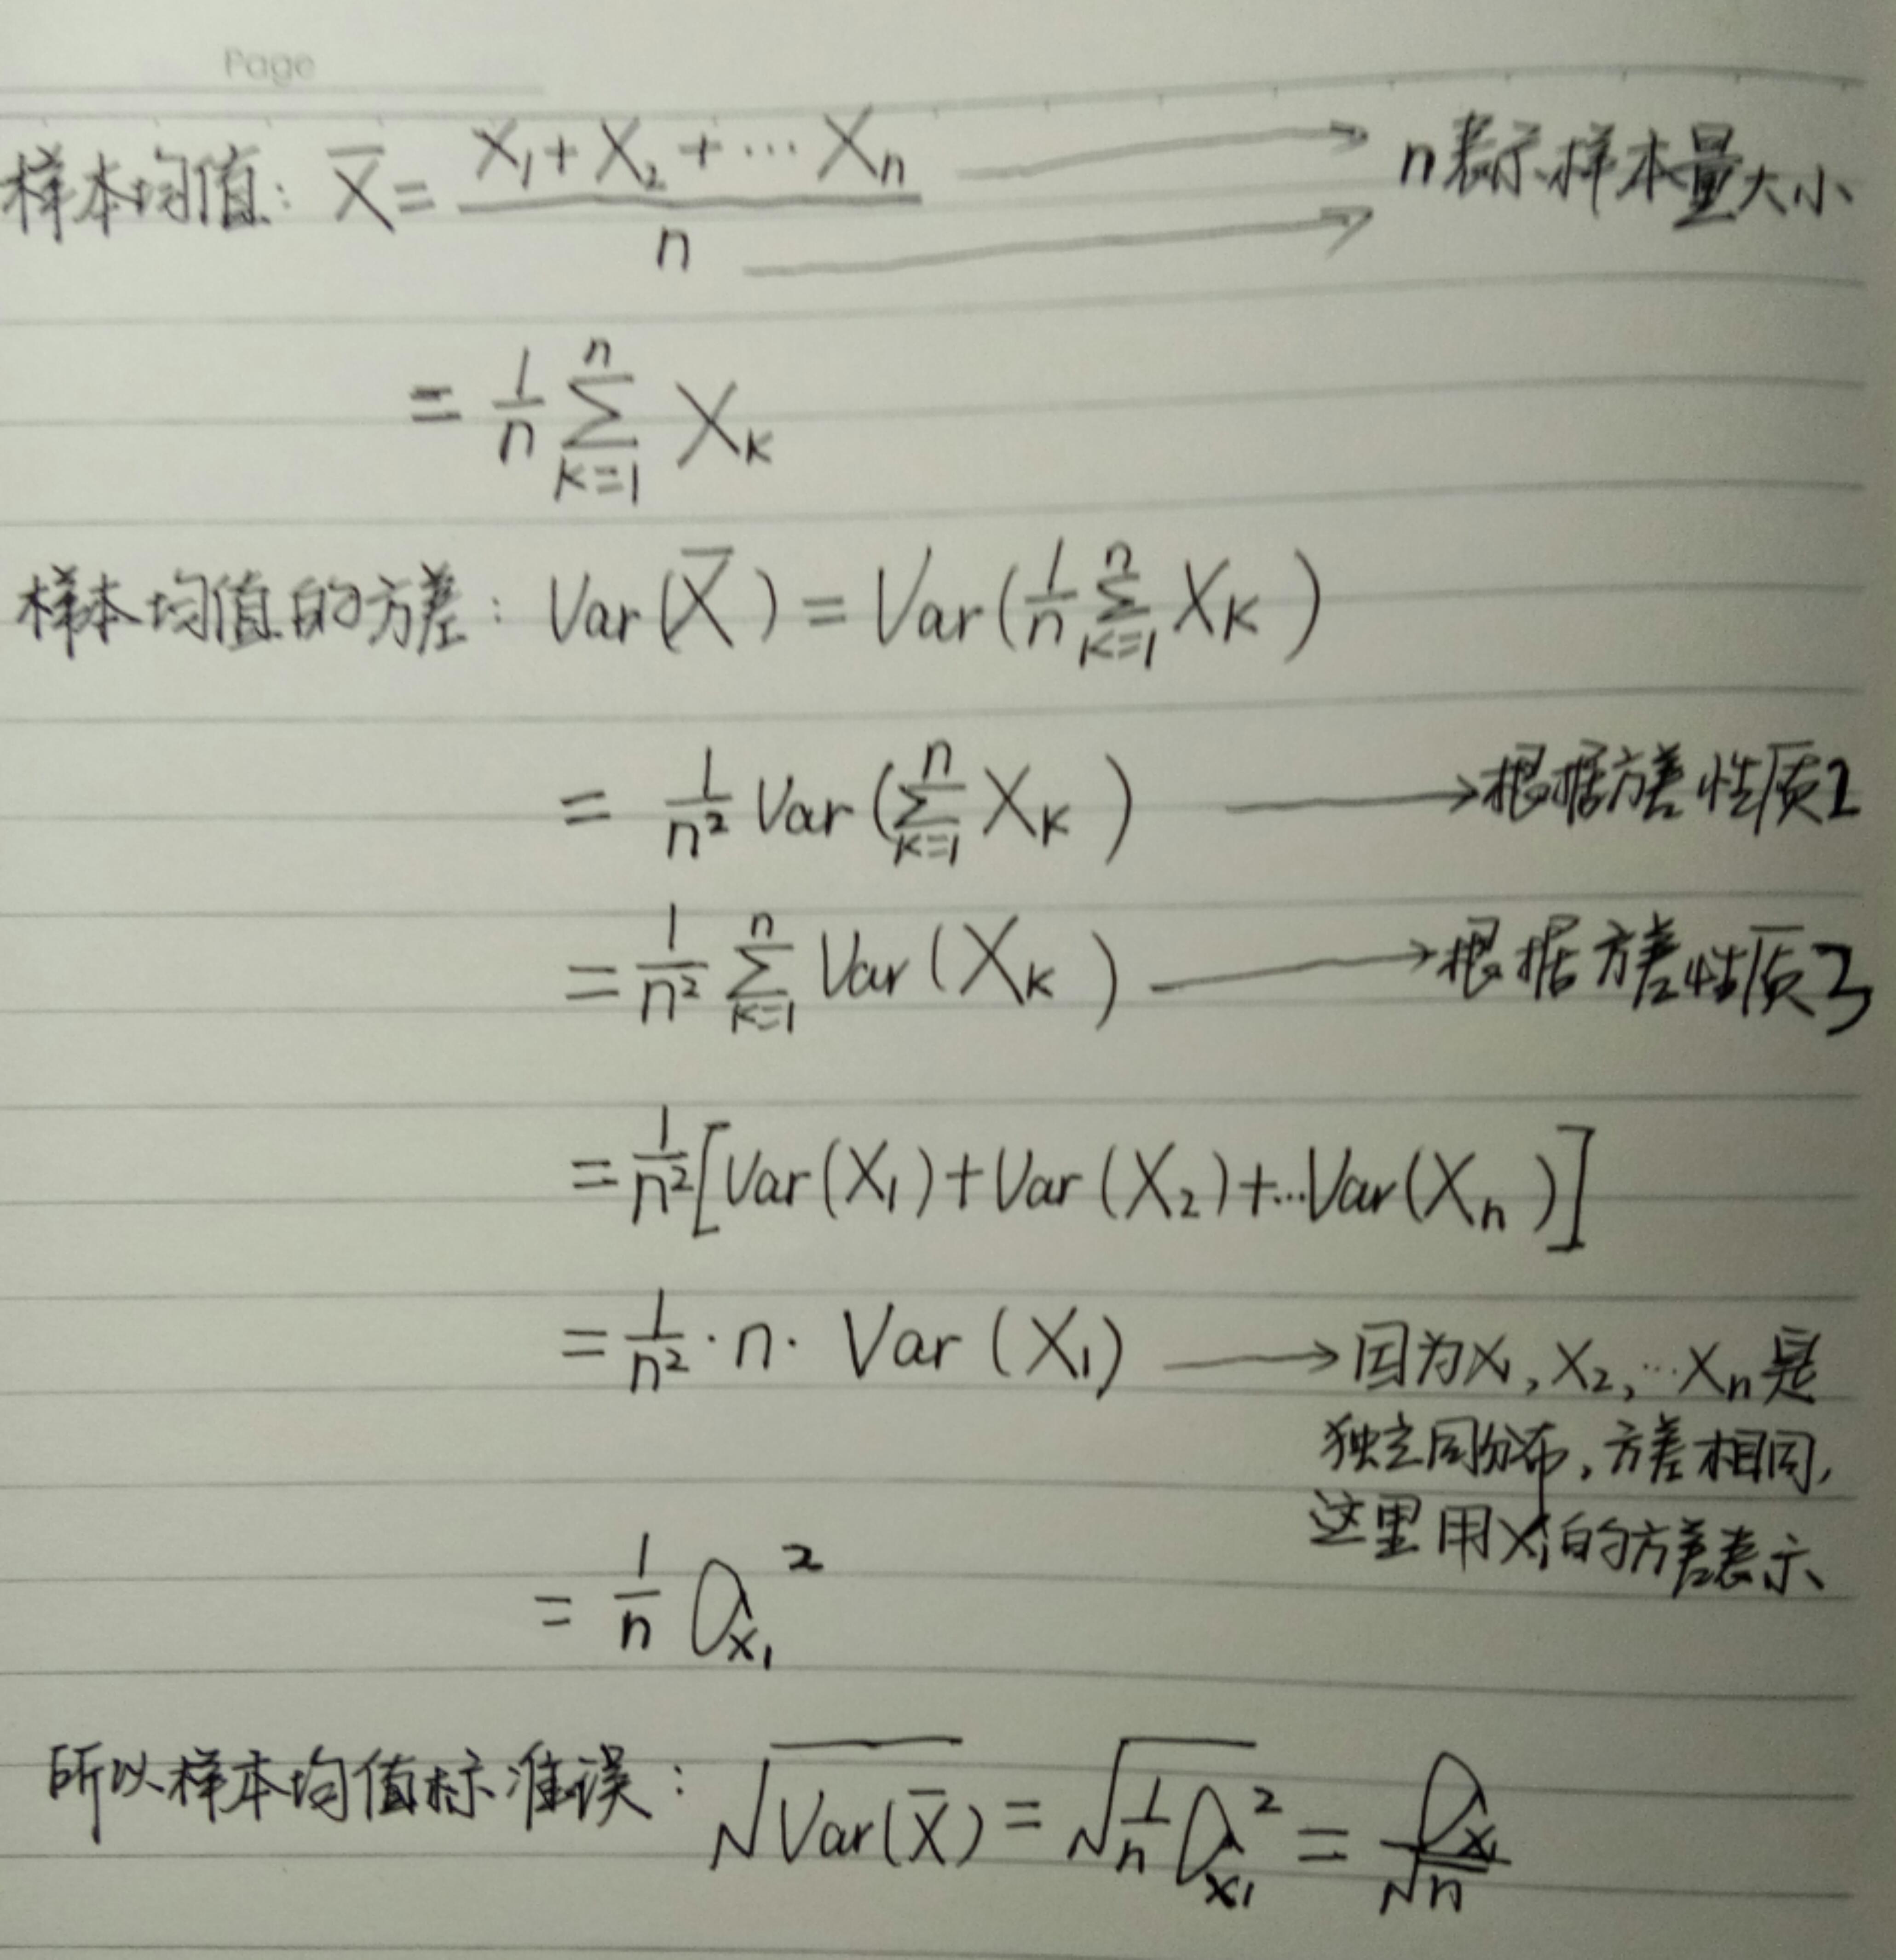 Page
样本均值: X̄ = (X₁+X₂+⋯Xₙ)/n → n表示样本量大小
= 1/n ∑ₖ₌₁ⁿ Xₖ
样本均值的方差: Var(X̄) = Var(1/n ∑ₖ₌₁ⁿ Xₖ)
= 1/n² Var(∑ₖ₌₁ⁿ Xₖ) → 根据方差性质2
= 1/n² ∑ₖ₌₁ⁿ Var(Xₖ) → 根据方差性质3
= 1/n² [Var(X₁)+Var(X₂)+…Var(Xₙ)]
= 1/n² · n · Var(X₁) → 因为X₁, X₂, …Xₙ是
独立同分布,方差相同,
这里用X₁的方差表示
= 1/n σₓ₁²
所以样本均值标准误: √Var(X̄) = √(1/n σₓ₁²) = σₓ₁/√n